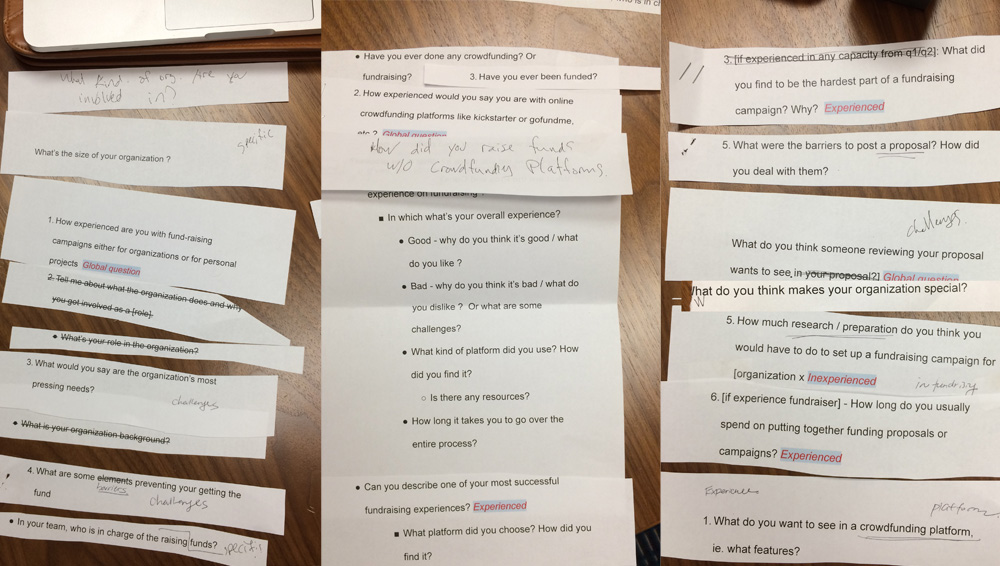 What kind of org. are you
involved in?
specific
What's the size of your organization ?
1. How experienced are you with fund-raising
campaigns either for organizations or for personal
projects Global question
2. Tell me about what the organization does and why
you got involved as a [role].
• What's your role in the organization?
3. What would you say are the organization's most
pressing needs?
challenges
• What is your organization background?
4. What are some elements preventing your getting the
barriers
fund
challenges
• In your team, who is in charge of the raising funds?
• Have you ever done any crowdfunding? Or
fundraising?
3. Have you ever been funded?
2. How experienced would you say you are with online
crowdfunding platforms like kickstarter or gofundme,
etc ? Global question
How did you raise funds
w/o Crowdfunding Platforms.
experience on fundraising
▪ In which what's your overall experience?
• Good - why do you think it's good / what
do you like ?
• Bad - why do you think it's bad / what do
you dislike ? Or what are some
challenges?
• What kind of platform did you use? How
did you find it?
○ Is there any resources?
• How long it takes you to go over the
entire process?
• Can you describe one of your most successful
fundraising experiences? Experienced
▪ What platform did you choose? How did you
find it?
3. [if experienced in any capacity from q1/q2]: What did
you find to be the hardest part of a fundraising
campaign? Why? Experienced
5. What were the barriers to post a proposal? How did
you deal with them?
challenges.
What do you think someone reviewing your proposal
wants to see in your proposal?] Global question
What do you think makes your organization special?
W
5. How much research / preparation do you think you
would have to do to set up a fundraising campaign for
[organization x Inexperienced
in fundraising
6. [if experience fundraiser] - How long do you usually
spend on putting together funding proposals or
campaigns? Experienced
platform
1. What do you want to see in a crowdfunding platform,
ie. what features?